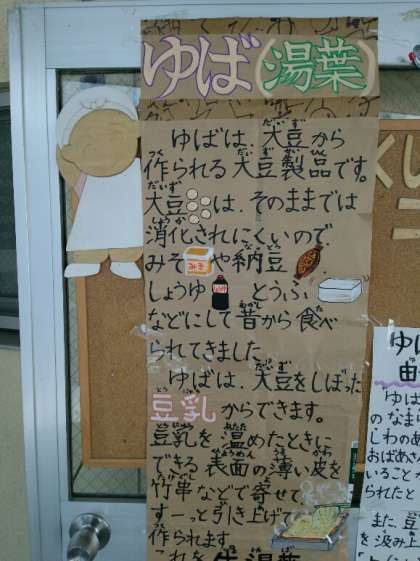 ゆば(湯葉)
ゆばは、大豆から
作られる大豆製品です。
大豆は、そのままでは
消化されにくいので
みそや納豆
しょうゆ とうふ
などにして昔から食べ
られてきました
ゆばは、大豆をしぼった
豆乳からできます。
豆乳を温めたときに
できる表面の薄い皮を
竹串などで寄せて
すーっと引き上げて
作られます
これを生湯葉
ゆば
由
ゆば
のなま
しわのあ
おばあさん
いることか
られたと
また、豆
を汲み上